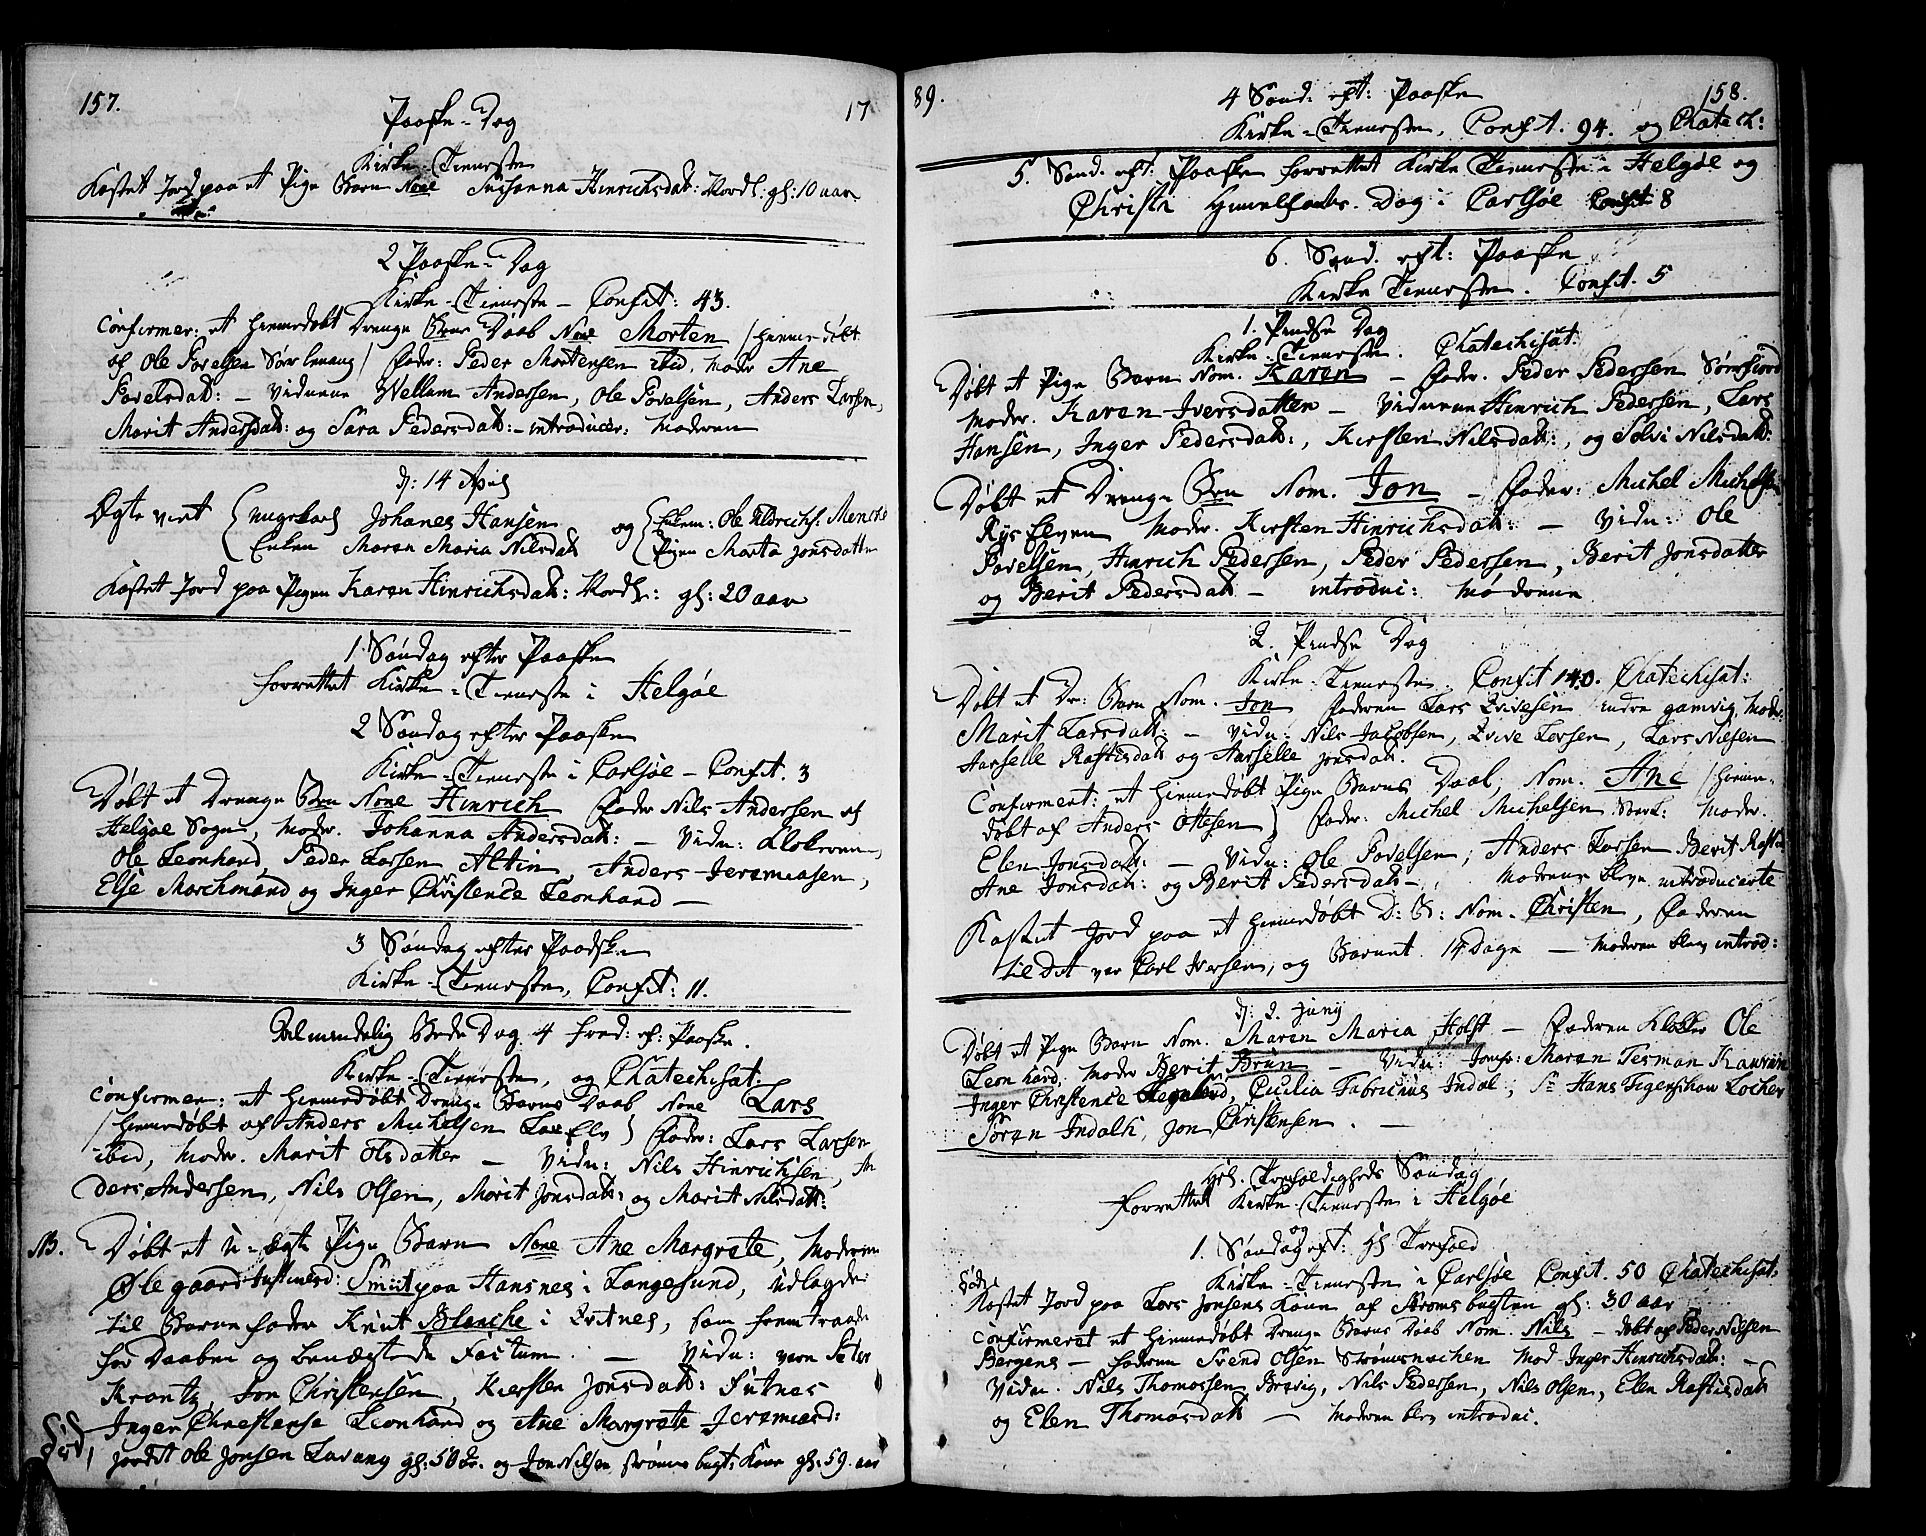 157.
17
Paaske-Dag
Kirke-Tieneste
Kastet Jord paa et Pige Barn None Susanna Hinrichsdat: Nordl: gl: 10 aar
2 Paaske-Dag
Kirke-Tieneste - Confit: 43.
Confirmer: et hiemedøbt Drenge Barns Daab None Morten /hiemedøbt
af Ole Povelsen Sørlenang/ Fader: Peder Mortensen ibid, Moder Ane
Povelsdat: - Vidnerne Wellum Andersen, Ole Povelsen, Anders Larsen,
Marit Andersdat: og Sara Pedersdat: - introducer: Moderen
d: 14 April
Ægte viet { Ungekarl Johanes Hansen og { Enkem: Ole Uldrichs. Mencke
Enken Maren Maria Nilsdat Pigen Marta Jonsdatter
Kastet Jord paa Pigen Karen Hinrichsdat: Nordl: gl: 20 aar
1 Søndag efter Paaske
forrettet Kirke-Tieneste i Helgøe
2 Søndag efter Paaske
Kirke-Tieneste i Carlsøe - Confit. 3
Døbt et Drenge Barn None Hinrich Fader Nils Andersen af
Helgøe Sogn, Moder. Johanna Andersdat: - Vidn: Klokeren
Ole Leonhard, Peder Larsen Altin Anders Jeremiasen,
Else Marchmand og Inger Christence Leonhard -
3 Søndag efter Paaske
Kirke-Tieneste, Confit: 11.
Almindelig Bede Dag 4 Fred: ef: Paaske.
Kirke-Tieneste, og Chatechisat.
Confirmer: et hiemedøbt Drenge Barns Daab None Lars
/hiemedøbt af Anders Michelsen Elv/ Fader: Lars Larsen
ibid, Moder. Marit Olsdatter - Vidn: Nils Hinrichsen, An
ders Andersen, Nils Olsen, Marit Jonsdat: og Marit Nilsdat:
NB. Døbt et U-ægte Pige Barn None Ane Margrete, Moderen
Ølegaard Smiit paa Hansnes i Langesund, udlagde
til Barne Fader Knut Blanche i Evitnes, som fremtraade
for Daaben og benægtede Factum. - Vidn: vare Peter
Krantz, Jon Christensen, Kiersten Jonsdat: Futnes
Inger Christense Leonhard og Ane Margrete Jeremiasd:
Jordet Ole Jonsen Lavang gl: 50 Jr. og Jon Nilsen Strømsbugt: Kone gl: 59. aar
89.
158.
4 Sønd: eft: Paaske
Kirke-Tieneste, Confit. 94. og Chatech:
5. Sønd. eft: Paaske forrettet Kirke Tieneste i Helgøe og
Christi Himelfarts Dag i Carlsøe Confit: 8
6. Sønd. eft: Paaske
Kirke Tieneste. Confit. 5
1. Pindse Dag
Kirke-Tieneste. Chatechisat:
Døbt et Pige Barn Nom. Karen - Fader. Peder Pedersen Sørfiord
Moder. Karen Iversdatter - Vidnerne Hinrich Pedersen, Lars
Hansen, Inger Pedersdat:, Kirsten Nilsdat:, og Solvi Nilsdat:
Døbt et Drenge Barn Nom. Jon - Fader: Michel Michelsen
Rys Elven Moder. Kirsten Hinrichsdat: - Vidn: Ole
Povelsen, Hinrich Pedersen, Peder Pedersen, Berit Jonsdatter
og Berit Pedersdat - introdui: Mødrene
2. Pindse Dag
Kirke-Tieneste. Confit 140. Chatechisat:
Døbt et Dr: Barn Nom. Jon Faderen Lars Evivesen indre gamvig, Moder.
Marit Larsdat: - Vidn: Nils Jacobsen, Evive Larsen, Lars Nilsen
Aarselle Rastisdat og Aarselle Jonsdat.
Confirmert: et hiemedøbt Pige Barns Daab, Nom. Ane /hieme-
døbt af Anders Ottesen/ Fader: Michel Michelsen Moder.
Elen Jonsdat: - Vidn: Ole Povelsen, Anders Larsen Berit
Ane Jonsdat: og Berit Pedersdat -, Moderne bleve introducerte
Kastet Jord paa et hiemedøbt D: B: Nom. Christen, Faderen
til det var Carl Iversen, og Barnet 14 Dage - Moderen blev introd:
d: 2. Juny
Døbt et Pige Barn Nom. Maren Maria Holst - Faderen Klokker Ole
Leonhard. Moder Berit Brun - Vidn: Jomfr: Maren Tesman
Inger Christence, Cicilia Fabricius Indal; Sr Hans Figenschou Locker
Søren Indahl, Jon Christensen. -
Hel. Trefoldigheds Søndag
Forrettet Kirke-Tieneste i Helgøe
og
1. Søndag eft: Hl Trefold
Kirke-Tieneste i Carlsøe Confit. 50 Chatechisat.
Kastet Jord paa Lars Jonsens Kone af Strømsbugten gl: 30 aar
Confirmeret et hiemedøbt Drenge Barns Daab Nom. Nils - døbt af Peder Nilsen
Bergens - Faderen Svend Olsen Strømsnachen Mod. Inger Hinrichsdat: -
Vidn. Nils Thomassen Brevig, Nils Pedersen, Nils Olsen, Elen Rastisdat
og Elen Thomasdat - Moderen blev introdui.